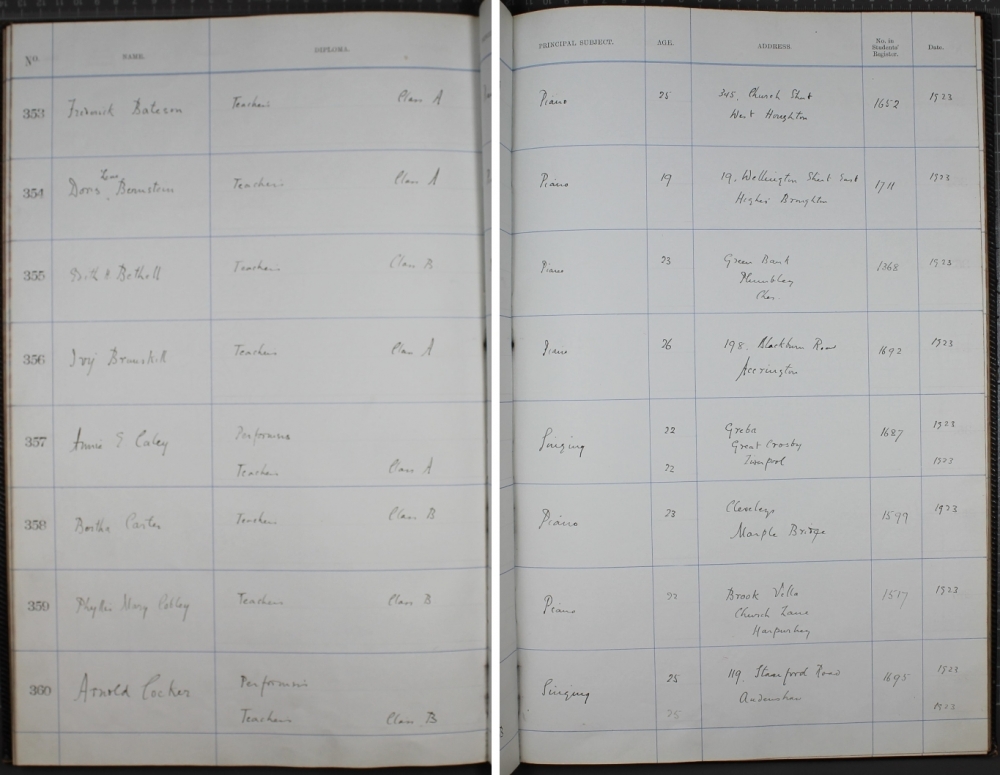 No. NAME. DIPLOMA. PRINCIPAL SUBJECT. AGE. ADDRESS. No. in Students' Register. Date.
353 Frederick Bateson Teachers Class A Piano 25 345, Church Street 1652 1923
West Houghton
354 Doris Bernstein Teachers Class A Piano 19 19, Wellington Street East 1711 1923
Higher Broughton
355 Edith E Bethell Teachers Class B Piano 23 Green Bank 1368 1923
Plumbley
Ches.
356 Ivy Brunskill Teachers Class A Piano 26 198, Blackburn Road 1692 1923
Accrington
357 Annie E Caley Performers Singing 22 Greba 1687 1923
Great Crosby
Teachers Class A 22 Liverpool 1923
358 Bertha Carter Teachers Class B Piano 23 Cleveleys 1599 1923
Marple Bridge
359 Phyllis Mary Cobley Teachers Class B Piano 22 Brook Villa 1517 1923
Church Lane
Harpurhey
360 Arnold Cocker Performers Singing 25 119, Stamford Road 1695 1923
Audenshaw
Teachers Class B 25 1923